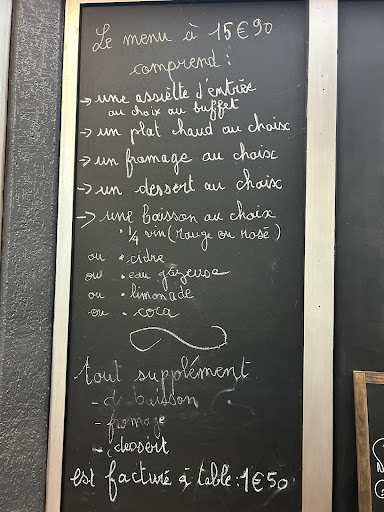 Le menu à 15€90
comprend :
→ une assiette d'entrée
au choix au buffet
→ un plat chaud au choix
→ un fromage au choix
→ un dessert au choix
→ une boisson au choix
• 1/4 vin (rouge ou rosé)
ou • cidre
ou • eau gazeuse
ou • limonade
ou • coca
tout supplément
- de baisson
- fromage
- dessert
est facturé à table : 1€50